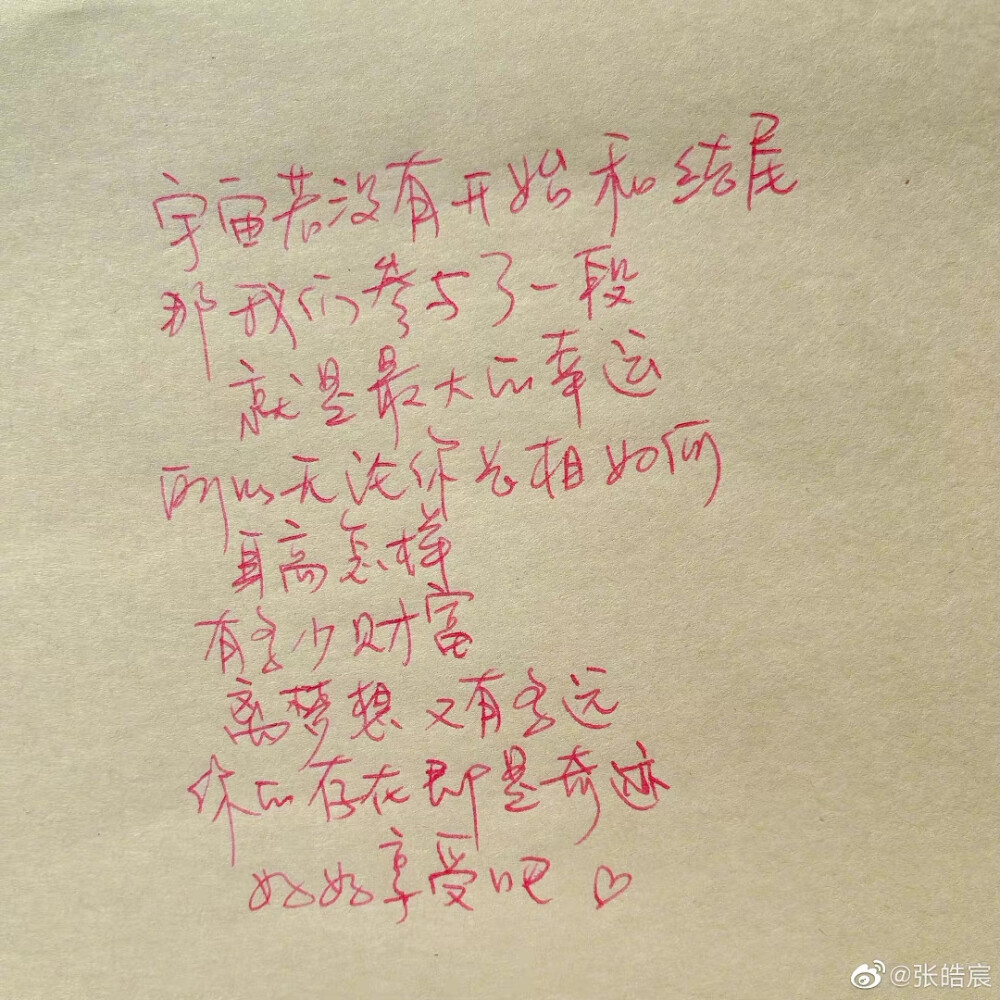 宇宙若没有开始和结尾
那我们参与了一段
就是最大的幸运
所以无论你长相如何
耳高怎样
有多少财富
离梦想又有多远
你的存在即是奇迹
好好享受吧♡
@张皓宸